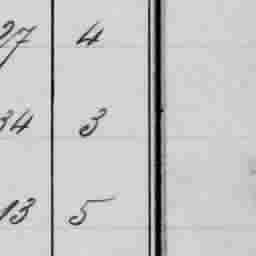 27 4
34 3
13 5